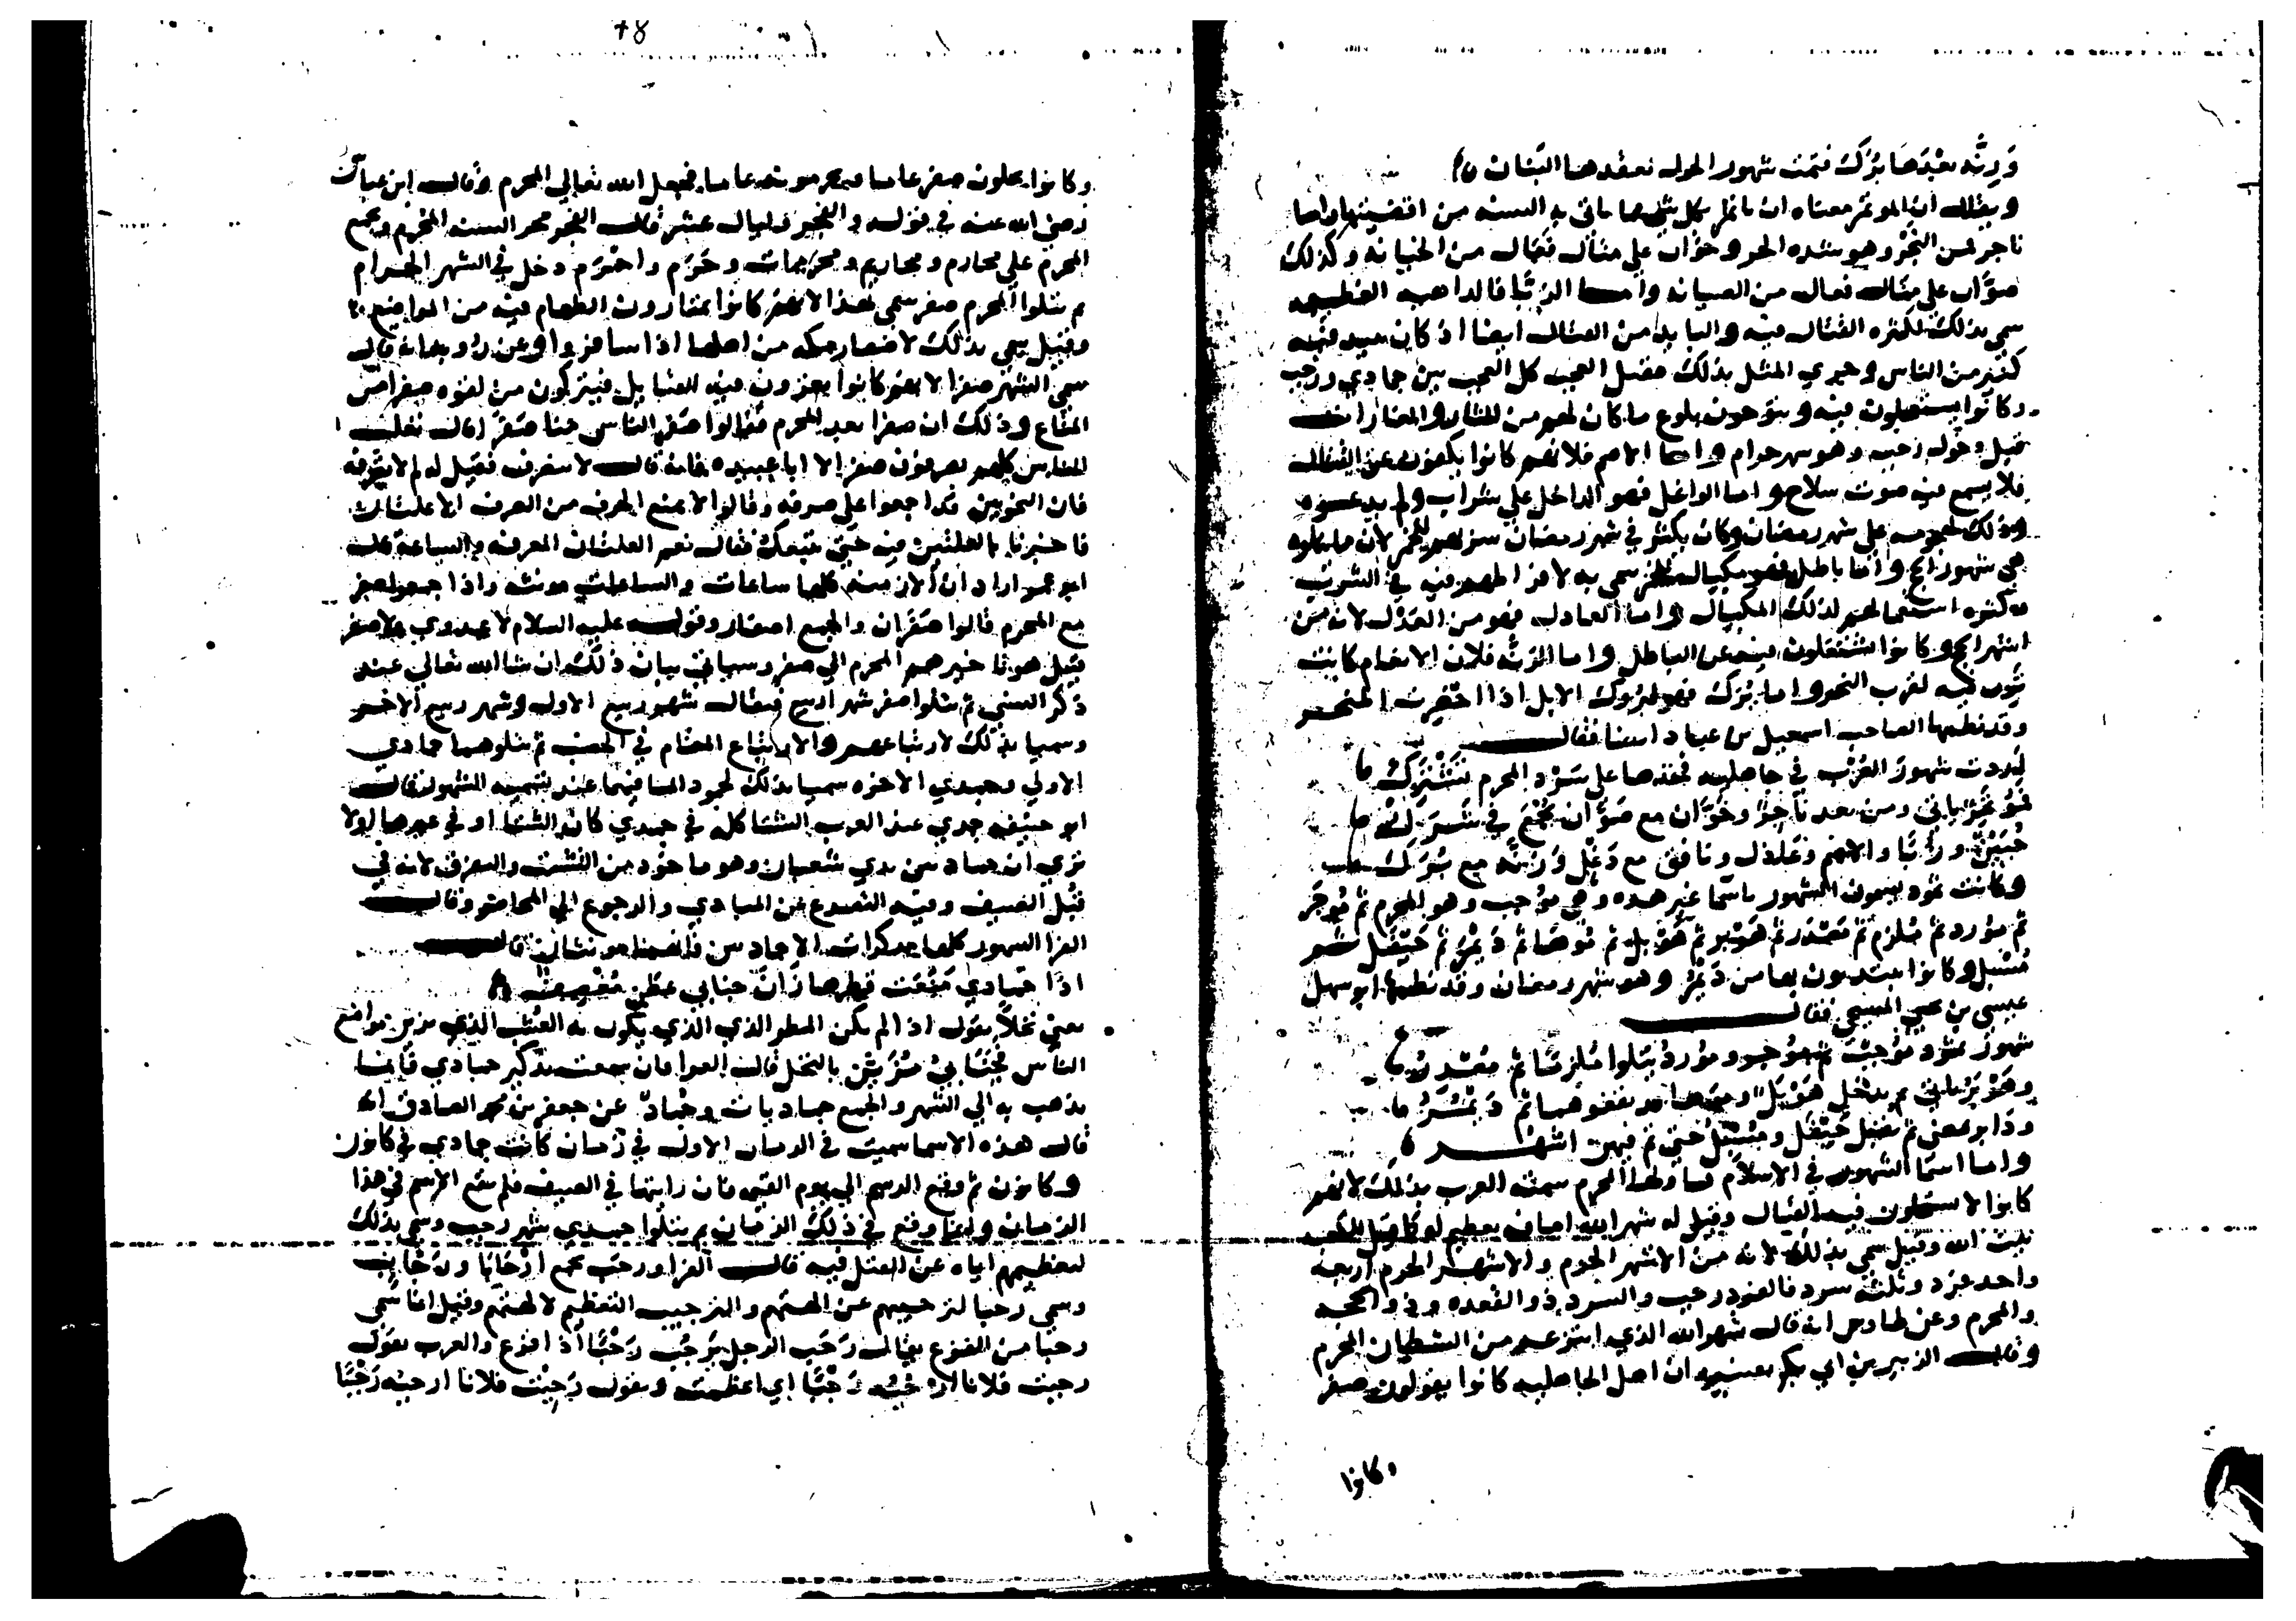 وَرِنَّه بعْدَهَا بُرَكٌ فتمت شهور الحول بعقدها البَنان
ويقال ان المؤتمر معناه ان ياتمر بكل شي مما ياتي به السنه من اقضيتها واما
ناجر فمن النجر وهو شده الحر وخوّان علي مثال فعّال من الخيانه وكذلك
صوّان علي مثال فعال من الصيانه واما الزبّا فالداهيه العظيمه
سمي بذلك لكثره القتال فيه والبايد من القتال ايضا اذ كان يبيد فيه
كثير من الناس وجري المثل بذلك فقيل العجب كل العجب بين جمادي ورجب
وكانوا يستعجلون فيه ويتوخون بلوع ما كان لهم من الثار والغارات
قبل دخول رجب وهو شهر حرام واما الاصم فلانهم كانوا يكفون عن القتال
فلا يسمع فيه صوت سلاح واما الواغل فهو الداخل علي شراب ولم يدعوه
وذلك لهجومه علي شهر رمضان وكان يكثر في شهر رمضان شربهم للخمر لان ما يتلوه
هي شهور الحج واما باطل فهو مكيال للخمر سمي به لافراطهم فيه في الشرب
وكثره استعمالهم لذلك المكيال واما العادل فهو من العدل لانه من
اشهر الحج وكانوا يشتغلون فيه عن الباطل واما الرنه فلان الانعام كانت
ترن فيه لقرب النحر واما بُرَك فهو لبروك الابل اذا احضرت المنحر
وقد نظمها الصاحب اسمعيل بن عباد ايضا فقال
اردت شهور العُرْب في جاهليه فخذها علي سَرْد المحرم تشترك
فمؤتمر ياتي ومن بعد ناجر وخوّان مع صوّان يجمع في شرك
حنين وزبّا والاصم وعادل ونافق مع وغل ورنه مع برك
وكانت ثمود يسمون الشهور باسما غير هذه وهي مؤجب وهو المحرم ثم موجر
ثم مورد ثم ملزم ثم مصدر ثم هوبر ثم هوبل ثم موها ثم ديمر ثم حيفل ثم
مسبل وكانوا يبتديون بها من ديمر وهو شهر رمضان وقد نظمها ابو سهل
عيسي بن يحيي المسيحي فقال
شهور ثمود موجب ثم موجر ومورد يتلوا ملزما ثم مصدر
وهوبر ياتي ثم يدخل هوبل وموها قد يقفوهما ثم ديمر
ودابر يمضي ثم يقبل حيفل ومسبل حتي تم فيهن اشهر
واما اسما الشهور في الاسلام فاولها المحرم سمته العرب بذلك لانهم
كانوا لا يستحلون فيه القتال وقيل له شهر الله اضافه تعظيم له كما قيل للكعبه
بيت الله وقيل سمي بذلك لانه من الاشهر الحرم والاشهر الحرم اربعه
واحد فرد وثلثه سرد فالفرد رجب والسرد ذو القعده وذو الحجه
والمحرم وعن طاوس انه قال شهر الله الذي انتزعه من الشيطان المحرم
وقال الزبير بن ابي بكر ان اهل الجاهليه كانوا يقولون صفر
وكانوا
48
وكانوا يحلون صفر عاما ويحرمونه عاما فجعل الله تعالي المحرم وقال ابن عباس
رضي الله عنه في قوله والفجر وليال عشر قال الفجر فجر السنه المحرم ويجمع
المحرم علي محارم ومحاريم ومحرمات وحَرَم واحترم دخل في الشهر الحرام
ثم يتلوا المحرم صفر سمي بهذا لانهم كانوا يمتارون الطعام فيه من المواضع
وقيل سمي بذلك لاصفار مكه من اهلها اذا سافروا وعن رؤبه انه قال
سمي الشهر صفرا لانهم كانوا يغزون فيه القبايل فيتركون من لقوه صفرا من
المتاع وذلك ان صفرا بعد المحرم فقالوا صفر الناس منا صفرا قال ثعلب
الناس كلهم يصرفون صفر الا ابا عبيده فانه قال لا ينصرف فقيل له لم لا تصرفه
فان النحويين قد اجمعوا علي صرفه وقالوا لا يمنع الحرف من الصرف الا علتان
فاخبرنا بالعلتين فيه حتي نتبعك فقال نعم العلتان المعرفه والساعة قال
ابو عمر اراد ان الازمنه كلها ساعات والساعات مونثه واذا جمعوا صفر
مع المحرم قالوا صفران والجمع اصفار وقوله عليه السلام لا عدوي ولا صفر
قيل هو تاخيرهم المحرم الي صفر وسياتي بيان ذلك ان شا الله تعالي عند
ذكر النسي ثم يتلوا صفر شهر ا ربيع فيقال شهر ربيع الاول وشهر ربيع الاخر
وسميا بذلك لارتباعهم والارتباع المقام في الخصب ثم يتلوهما جمادي
الاولي وجمادي الاخره سميا بذلك لجمود الما فيهما عند تسميه الشهور قال
ابو حنيفه جمادي عند العرب الشتا كله في جمادي كان الشتا او في غيرها اولا
تري ان جمادي بين يدي شعبان وهو ماخوذ من التشتت والتفرق لانه في
قبل الصيف وفيه التصدع عن المبادي والرجوع الي المحاضر وقال
الفرا الشهور كلها مذكرات الا جمادين فانهما مونثان قال
اذا جمادي مَنَعت قطرها زان جنابي عَطَن مُغْصِف
يعني نخلا يقول اذا لم يكن المطر الذي يكون به العشب الذي يزين مواضع
الناس فجنابي مُزَيَّن بالنخل قال الفرا فان سمعت تذكير جمادي فانما
يذهب به الي الشهر والجمع جماديات وجماد عن جعفر بن محمد الصادق انه
قال هذه الاسما سميت في الزمان الاول في زمان كانت جمادي في كانون
وكانون ثم وقع الرسم الي يوم القيمه فان رايتها في الصيف فلم يقع الاسم في هذا
الزمان وانما وقع في ذلك الزمان ثم يتلوا جمادي شهر رجب وسمي بذلك
لتعظيمهم اياه عن القتل فيه قال الفرا ورجب يجمع ارجابا ورجاب
وسمي رجبا لترجيبهم عن الهتهم والترجيب التعظيم لالهتهم وقيل انما سمي
رجبا من الفزع يقال رَجَب الرجل يَرجُب رَجْبًا اذا فزع والعرب تقول
رجبت فلانا ارجبُه رَجْبًا اي اعظمته ويقول رَجِبْت فلانا ارجبه رَجْبًا